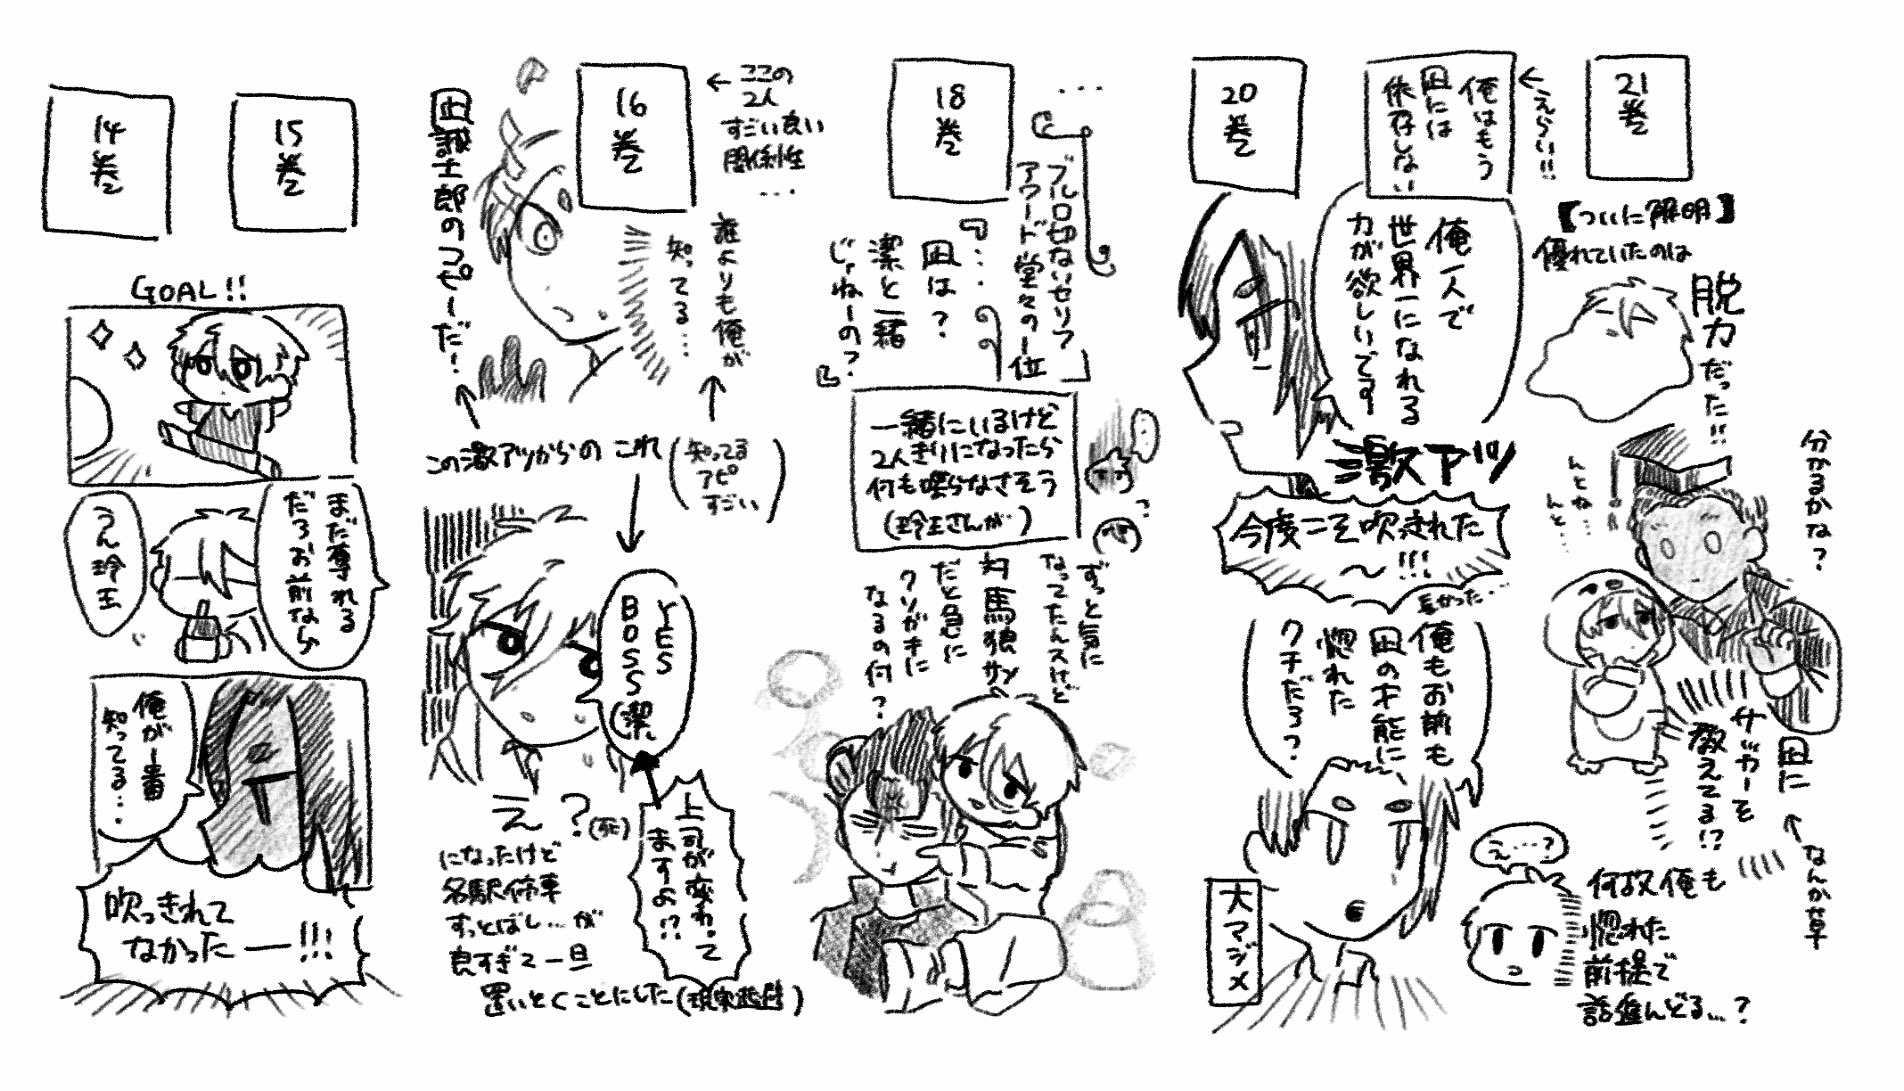 21巻
【ついに解明】
優れていたのは
脱力だった!!
分かるかな?
んとね…
んと…
凪に
サッカーを
教えてる!?
なんか草
何故俺も
惚れた
前提で
話進んどる…?
え…?
えらい!!
俺はもう
凪には
依存しない
20巻
俺一人で
世界一になれる
力が欲しいです
激アツ
今度こそ吹っ走れた
〜!!!
長かった…
俺もお前も
凪の才能に、
惚れた
クチだろ?
大マジメ
…
ブルロ切ないセリフ
アワード堂々の一位
18巻
『…
凪は?
潔と一緒
じゃねーの?』
一緒にいるけど
2人きりになったら
何も喋らなさそう
(玲王さんが)
ずっと気に
なってたんスけど
対馬狼サンへ
だと急に
クソガキに
なるの何?
ここの
2人
すごい良い
関係性
…
16巻
誰よりも俺が
知ってる…
(知ってる
アピ
すごい)
凪誠士郎のコピーだ!
この激アツからの これ
YES
BOSS
(潔)
上司が変わって
ますよ!?
え?(死)
になったけど
名駅伝車
すっとばし…が
良すぎて一旦
置いとくことにした(現実逃避)
15巻
14巻
GOAL!!
まだ奪れる
だろお前なら
うん玲王
俺が一番
知ってる…
吹っきれて
なかったー!!!